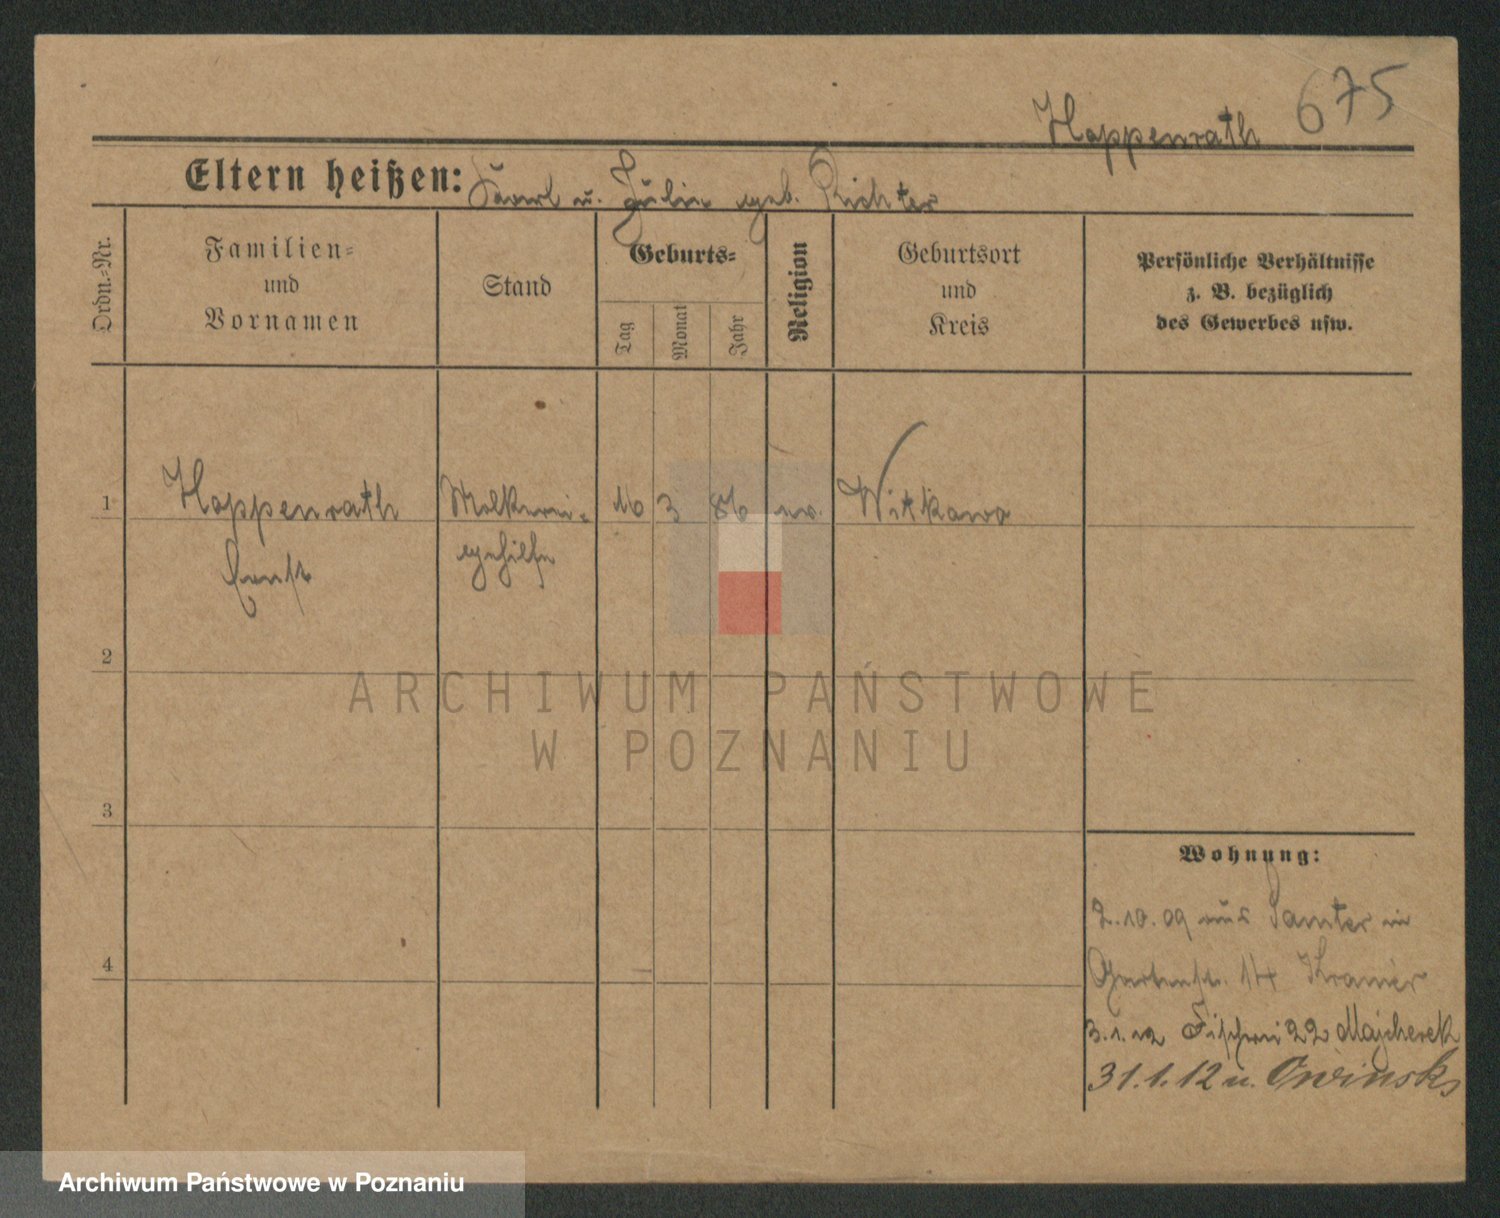 675
Hoppenrath
Eltern heißen: Karl u. Julie geb. Richter
Ordn.-Nr.
Familien-
und
Vornamen
Stand
Geburts-
Tag
Monat
Jahr
Religion
Geburtsort
und
Kreis
Persönliche Verhältnisse
z. B. bezüglich
des Gewerbes usw.
1 Hoppenrath Molkerei- 10 3 86 ev. Witkowo
Ernst gehilfe
2
3
4
Wohnung:
2.10.09 aus Samter in
Gartenstr. 14 Kramer
3.1.12 Fischerei 22 Majcherek
31.1.12 n. Owinsk
ARCHIWUM PAŃSTWOWE
W POZNANIU
Archiwum Państwowe w Poznaniu